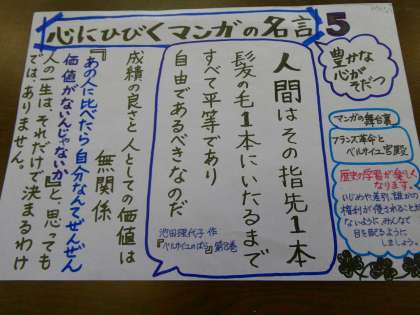 心にひびくマンガの名言
5
豊かな
心が
そだつ
人間はその指先1本
髪の毛1本にいたるまで
すべて平等であり
自由であるべきなのだ
池田理代子 作
『ベルサイユのばら』第8巻
成績の良さと人としての価値は
無関係
『あの人に比べたら自分なんてぜんぜん
価値がないんじゃないか』と、思っても
人の一生は、それだけで決まるわけ
では、ありません。
マンガの舞台裏
フランス革命と
ベルサイユ宮殿
歴史の学習が楽しく
なります。
いじめや差別、誰かの
権利が侵されることが
ないように、みんなで
目を配るように
しましょう。